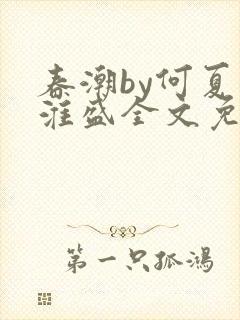 春潮by何夏
漄盛全文免
第一只孤鴻